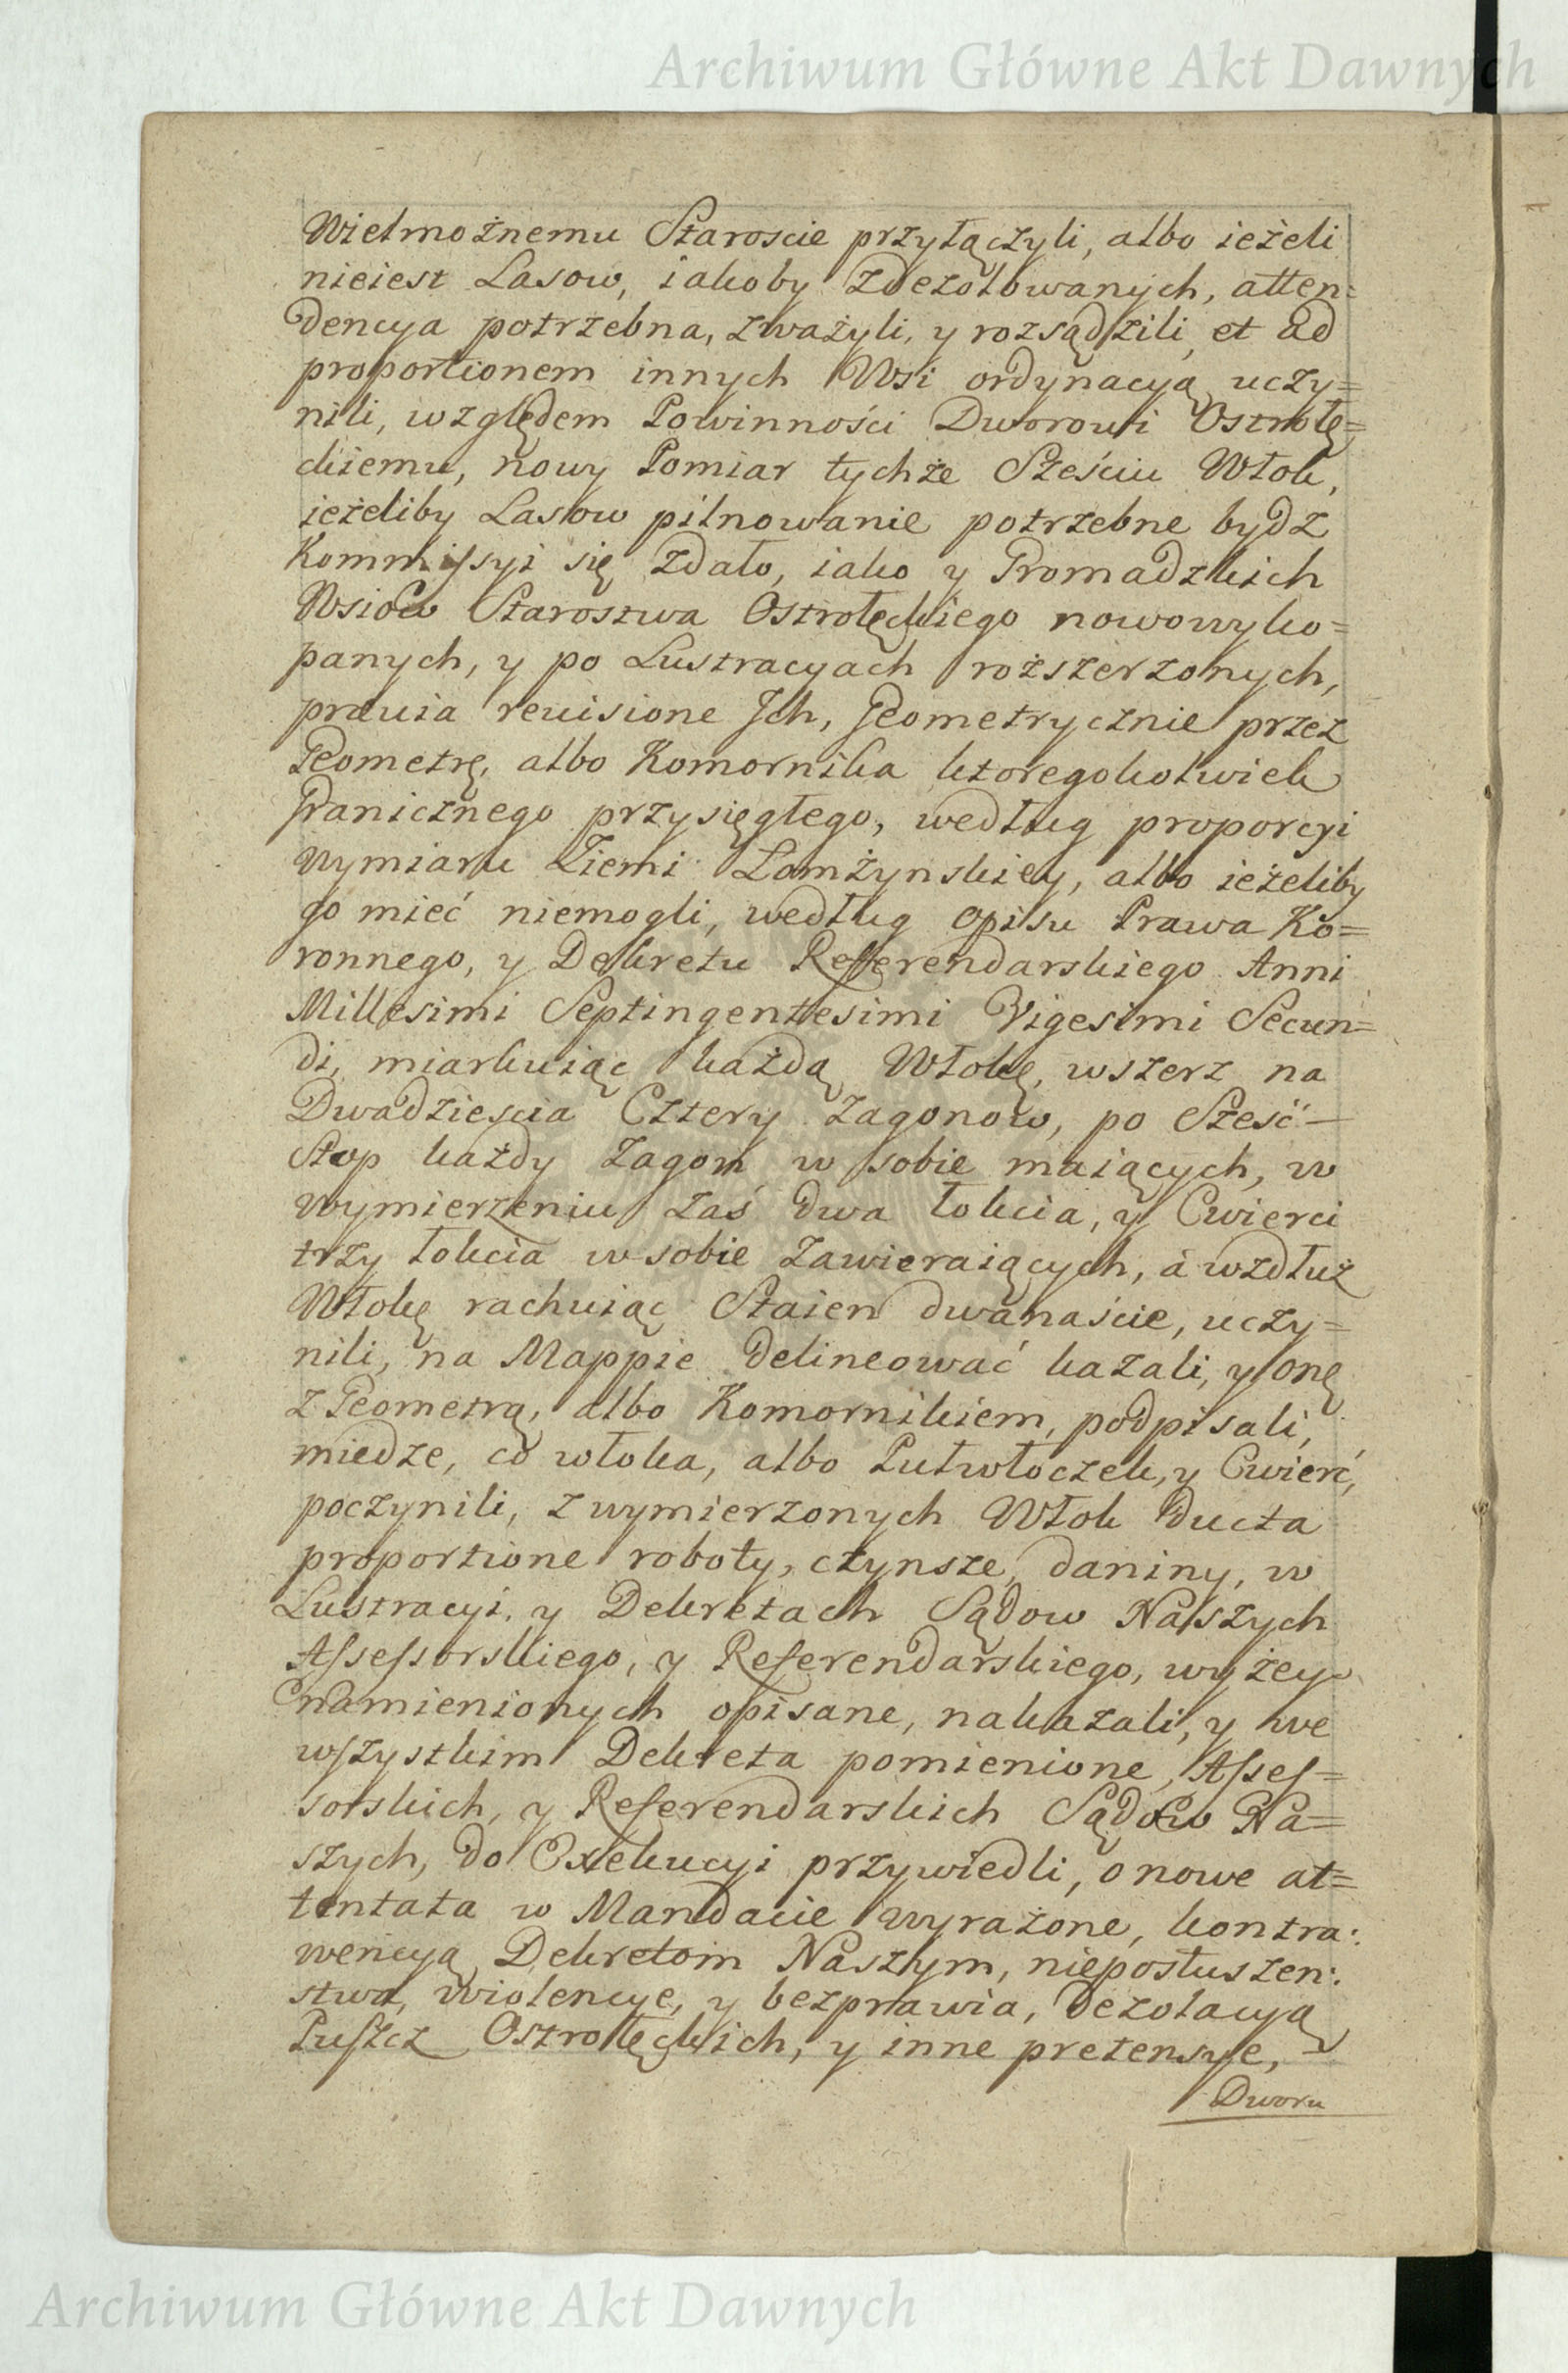 Archiwum Główne Akt Dawnych
Wielmożnemu Staroscie przyłączyli, albo ieżeli
nieiest Lasow, iakoby zdezolowanych, atten=
dencya potrzebna, zważyli, y rozsądzili, et ad
proportionem innych Wsi ordynacyą uczy=
nili, względem Powinności Dworowi Ostrołę=
ckiemu, nowy Pomiar tychże Sześciu Włok,
ieżeliby Lasow pilnowanie potrzebne bydz
Kommissyi się zdało, iako y Gromadzkich
Wsiow Starostwa Ostrołęckiego nowowyko=
panych, y po Lustracyach roższerzonych,
prævia revisione Jch, Geometrycznie przez
Geometrę, albo Komornika ktoregokolwiek
Granicznego przysięgłego, według proporcyi
wymiaru Ziemi Lomżynskiey, albo ieżeliby
go mieć niemogli, według opisu Prawa Ko=
ronnego, y Dekretu Referendarskiego Anni
Millesimi Septingentesimi Vigesimi Secun=
di, miarkuiąc każdą Włokę, wszerz na
Dwadziescia Cztery Zagonow, po Sześć
Stop każdy Zagon w sobie maiących, w
wymierzeniu zaś dwa łokcia, y Cwierci
trzy łokcia w sobie zawieraiących, à wzdłuż
Włokę rachuiąc Staien dwanaście, uczy=
nili, na Mappie delineować kazali, y onę
z Geometrą, albo Komornikiem, podpisali,
miedze, co włoka, albo Pułwłoczek, y Cwierć,
poczynili, z wymierzonych Włok ducta
proportione roboty, czynsze, daniny, w
Lustracyi, y Dekretach Sądow Naszych
Assessorskiego, y Referendarskiego, wyżey
namienionych opisane, nakazali, y we
wszystkim Dekreta pomienione, Asses=
sorskich, y Referendarskich Sądow Na=
szych, do Exekucyi przywiedli, o nowe at=
tentata w Mandacie wyrażone, kontra:
wencyą Dekretom Naszym, nieposłuszen:
stwa, wiolencye, y bezprawia, dezolacyą
Puszcz Ostrołęckich, y inne pretensye,
Dworu
Archiwum Główne Akt Dawnych